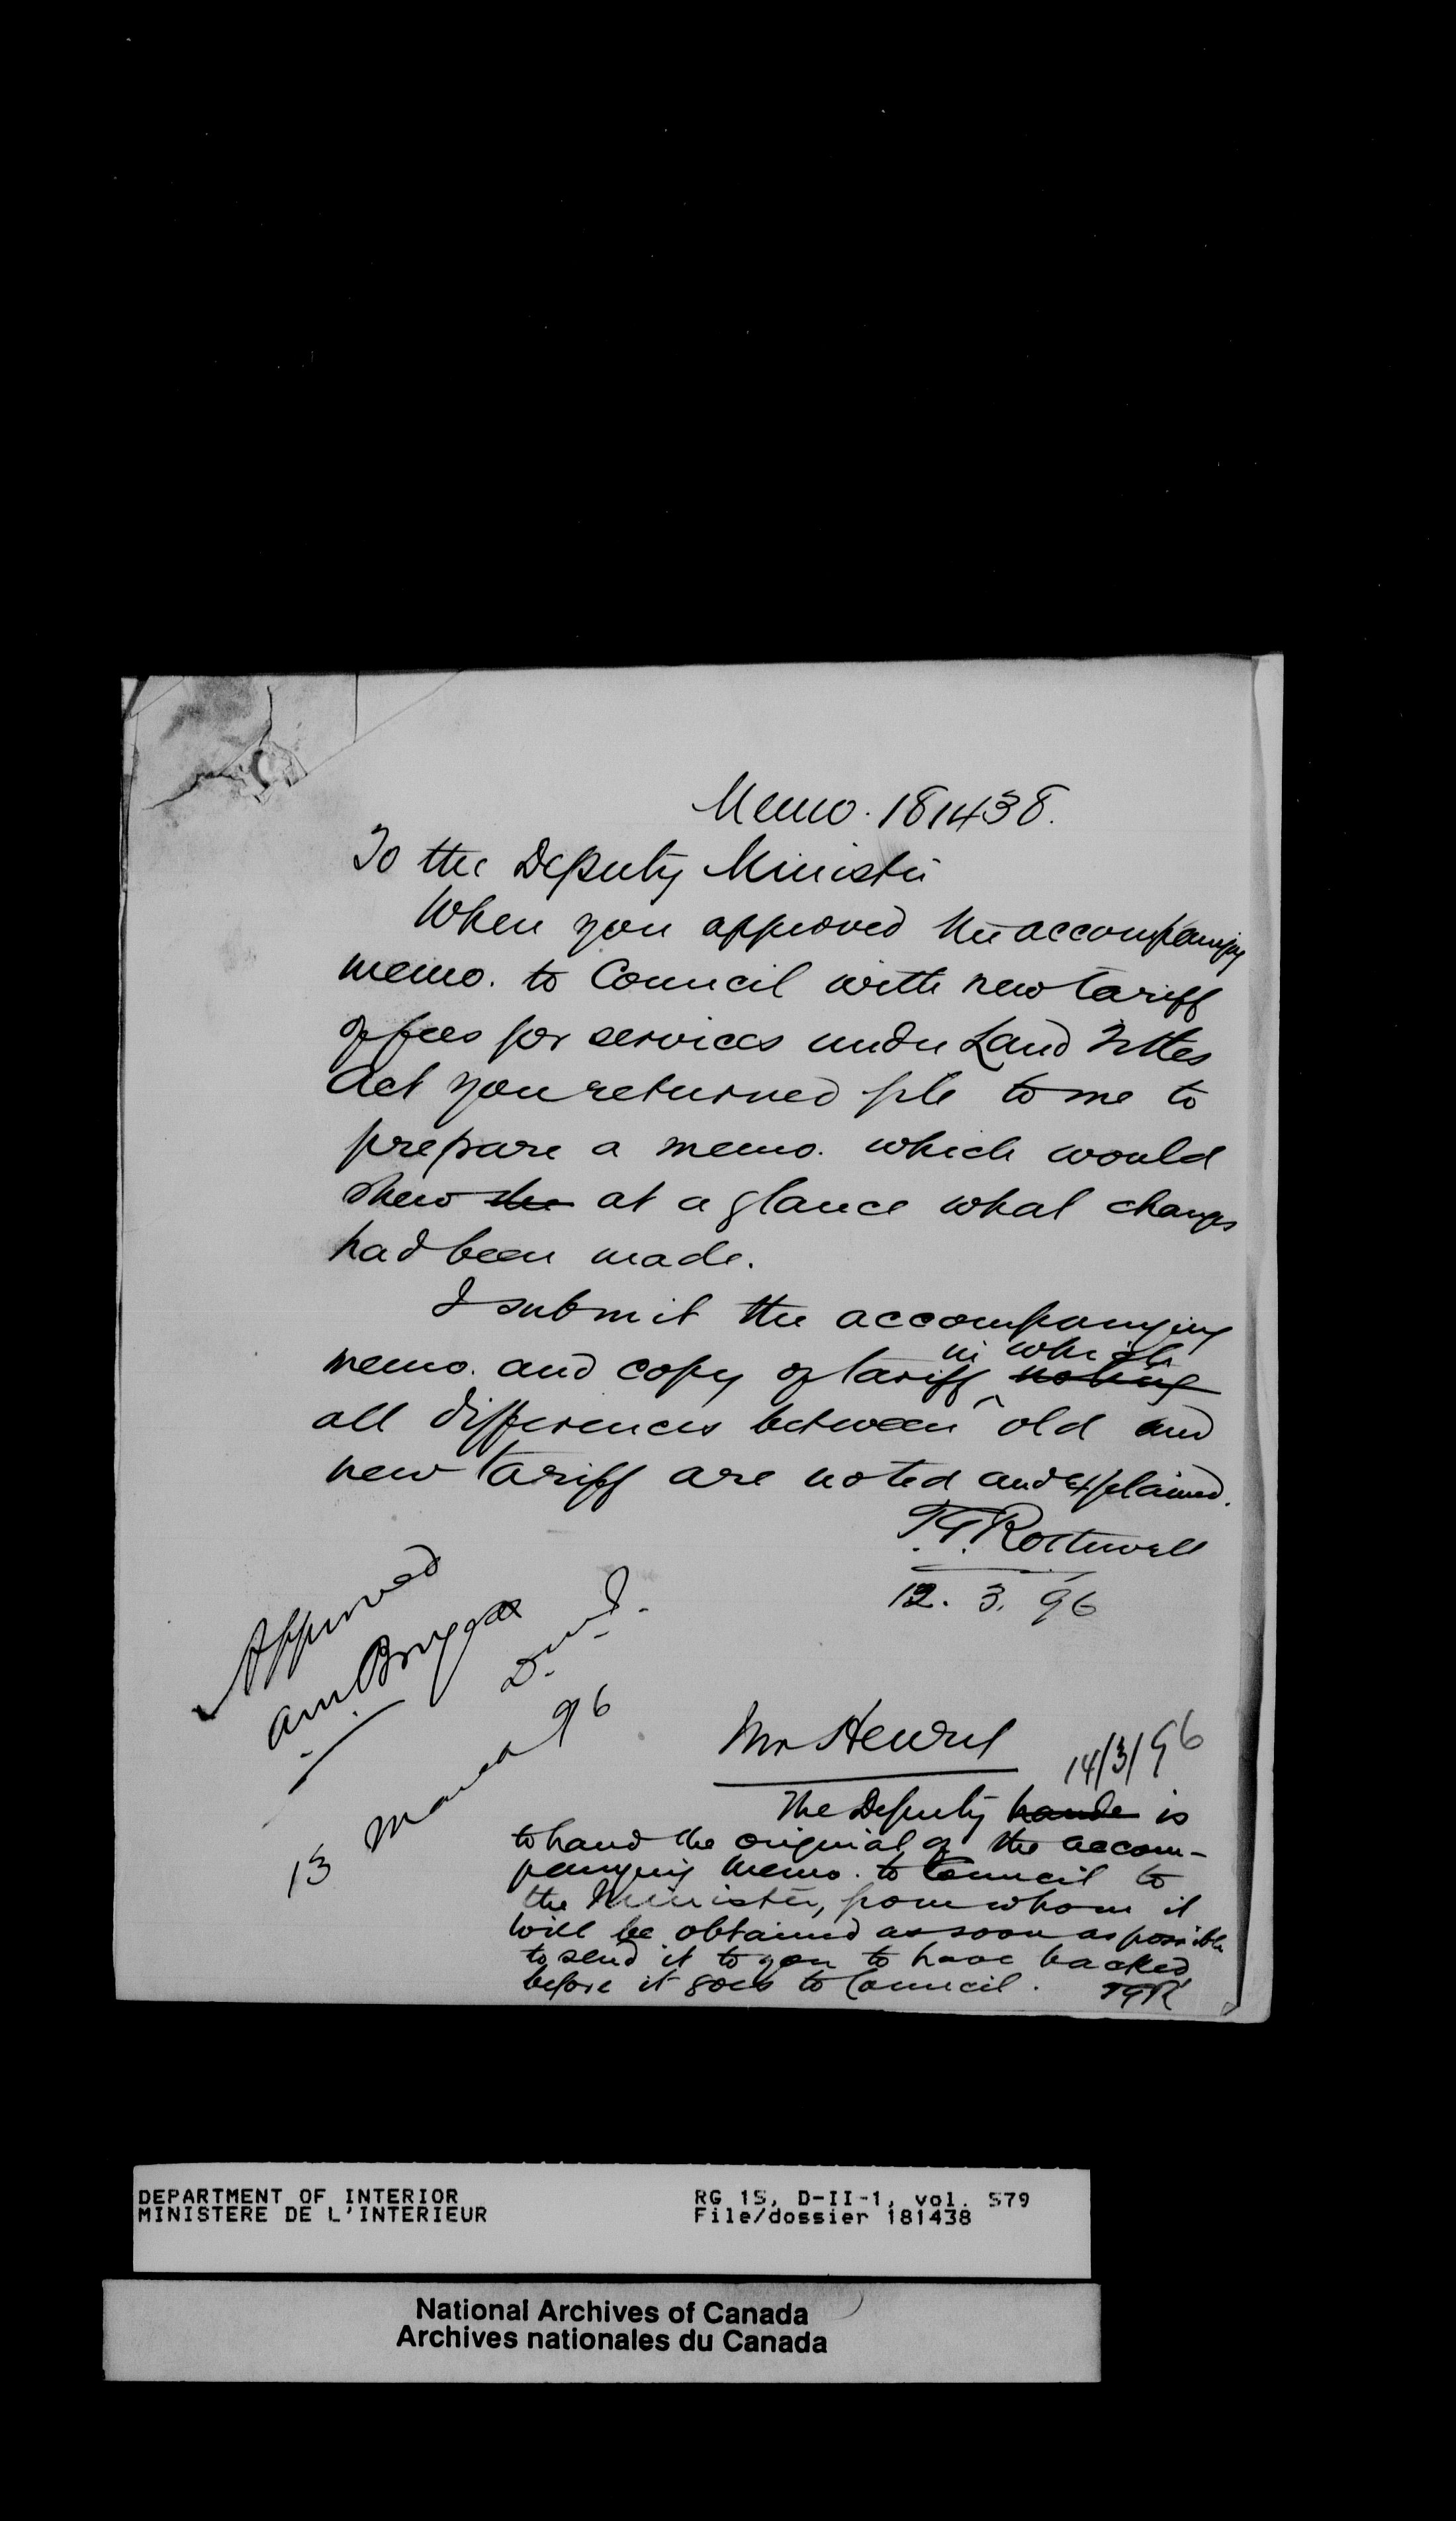 Memo. 181438.
To the Deputy Minister
When you approved the accompanying
memo. to Council with new tariff
of fees for services under Land Titles
Act you returned file to me to
prepare a memo. which would
shew the at a glance what changes
had been made.
I submit the accompanying
in which
memo. and copy of tariff noting
all differences between old and
new tariff are noted and explained.
T.G. Rothwell
12. 3. 96
Approved
A M Burgess
D. M. I.
13 March 96
Mr Henry
14/3/96
The Deputy hande is
to hand the original of the accom-
panying memo. to Council to
the Minister, from whom it
will be obtained as soon as possible
to send it to you to have backed
before it goes to Council. TGR
DEPARTMENT OF INTERIOR
MINISTERE DE L'INTERIEUR
RG 15, D-II-1, vol. 579
File/dossier 181438
National Archives of Canada
Archives nationales du Canada